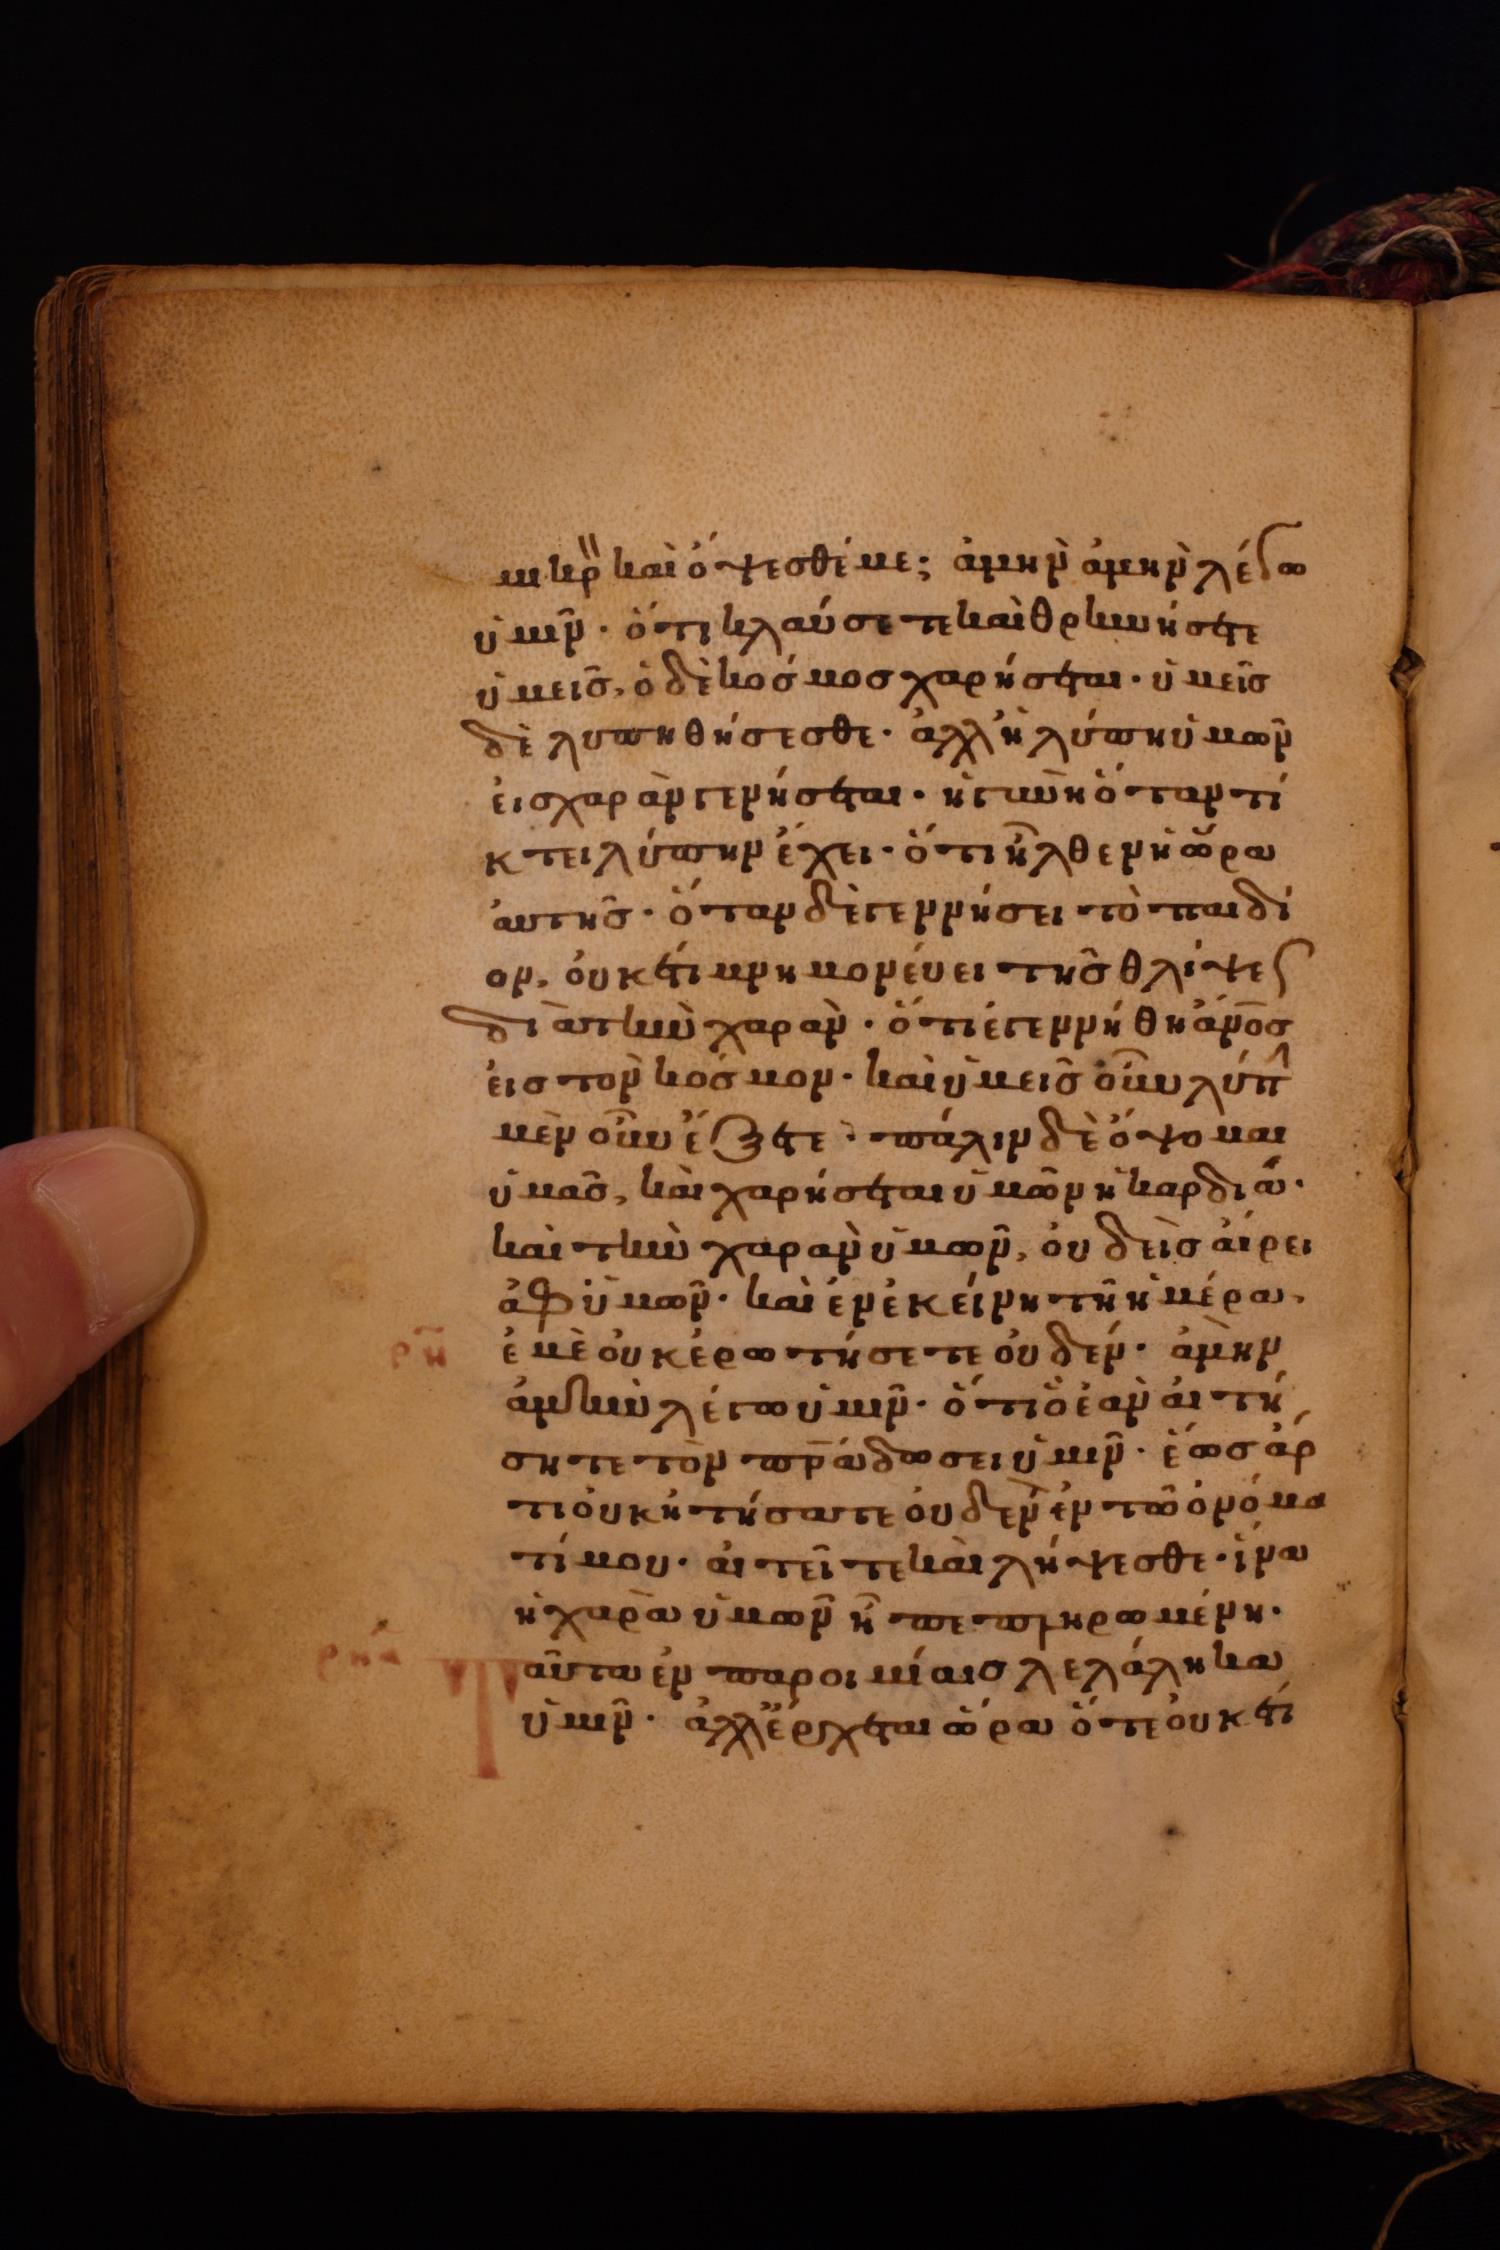 μικρ̀ καὶ ὄψεσθέ με; ἀμὴν ἀμὴν λέγω
ὑμῖν· ὅτι κλαύσετε καὶ θρηνήσετε
ὑμεῖς, ὁ δὲ κόσμος χαρήσεται· ὑμεῖς
δὲ λυπηθήσεσθε· ἀλλ' ἡ λύπη ὑμῶν
εἰς χαρὰν γενήσεται· ἡ γυνὴ ὅταν τί
κτει λύπην ἔχει· ὅτι ἦλθεν ἡ ὥρα
ἀυτῆς· ὅταν δὲ γεννήσει τὸ παιδί
ον, ὀυκέτι μνημονέυει τῆς θλίψεως
διὰ τὴν χαρὰν· ὅτι ἐγεννήθη ἄνος
ἐις τὸν κόσμον· καὶ ὑμεῖς οὖν λύπ
μὲν οὖν ἕξετε· πάλιν δὲ ὄψομαι
ὑμᾶς, καὶ χαρήσεται ὑμῶν ἡ καρδία·
καὶ τὴν χαρὰν ὑμῶν, ὀυδεὶς ἀίρει
ἀφ' ὑμῶν· καὶ ἐν ἐκείνη τῆ ἡμέρα,
ρξ ἐμὲ ὀυκ ἐρωτήσετε ὀυδέν· ἀμὴν
ἀμὴν λέγω ὑμῖν· ὅτι ὃ ἐὰν ἀιτή
σητε τὸν πρ̅α δώσει ὑμῖν· ἕως ἄρ
τι ὀυκ ἠτήσατε ὀυδὲν ἐν τῶ ὀνόμα
τί μου· ἀιτεῖτε καὶ λήψεσθε· ἵνα
ἡ χαρὰ ὑμῶν ἦ πεπληρωμένη·
ρηα Ταῦτα ἐν παροιμίαις λελάληκα
ὑμῖν· ἀλλ' ἔρχεται ὥρα ὅτε ὀυκέτι